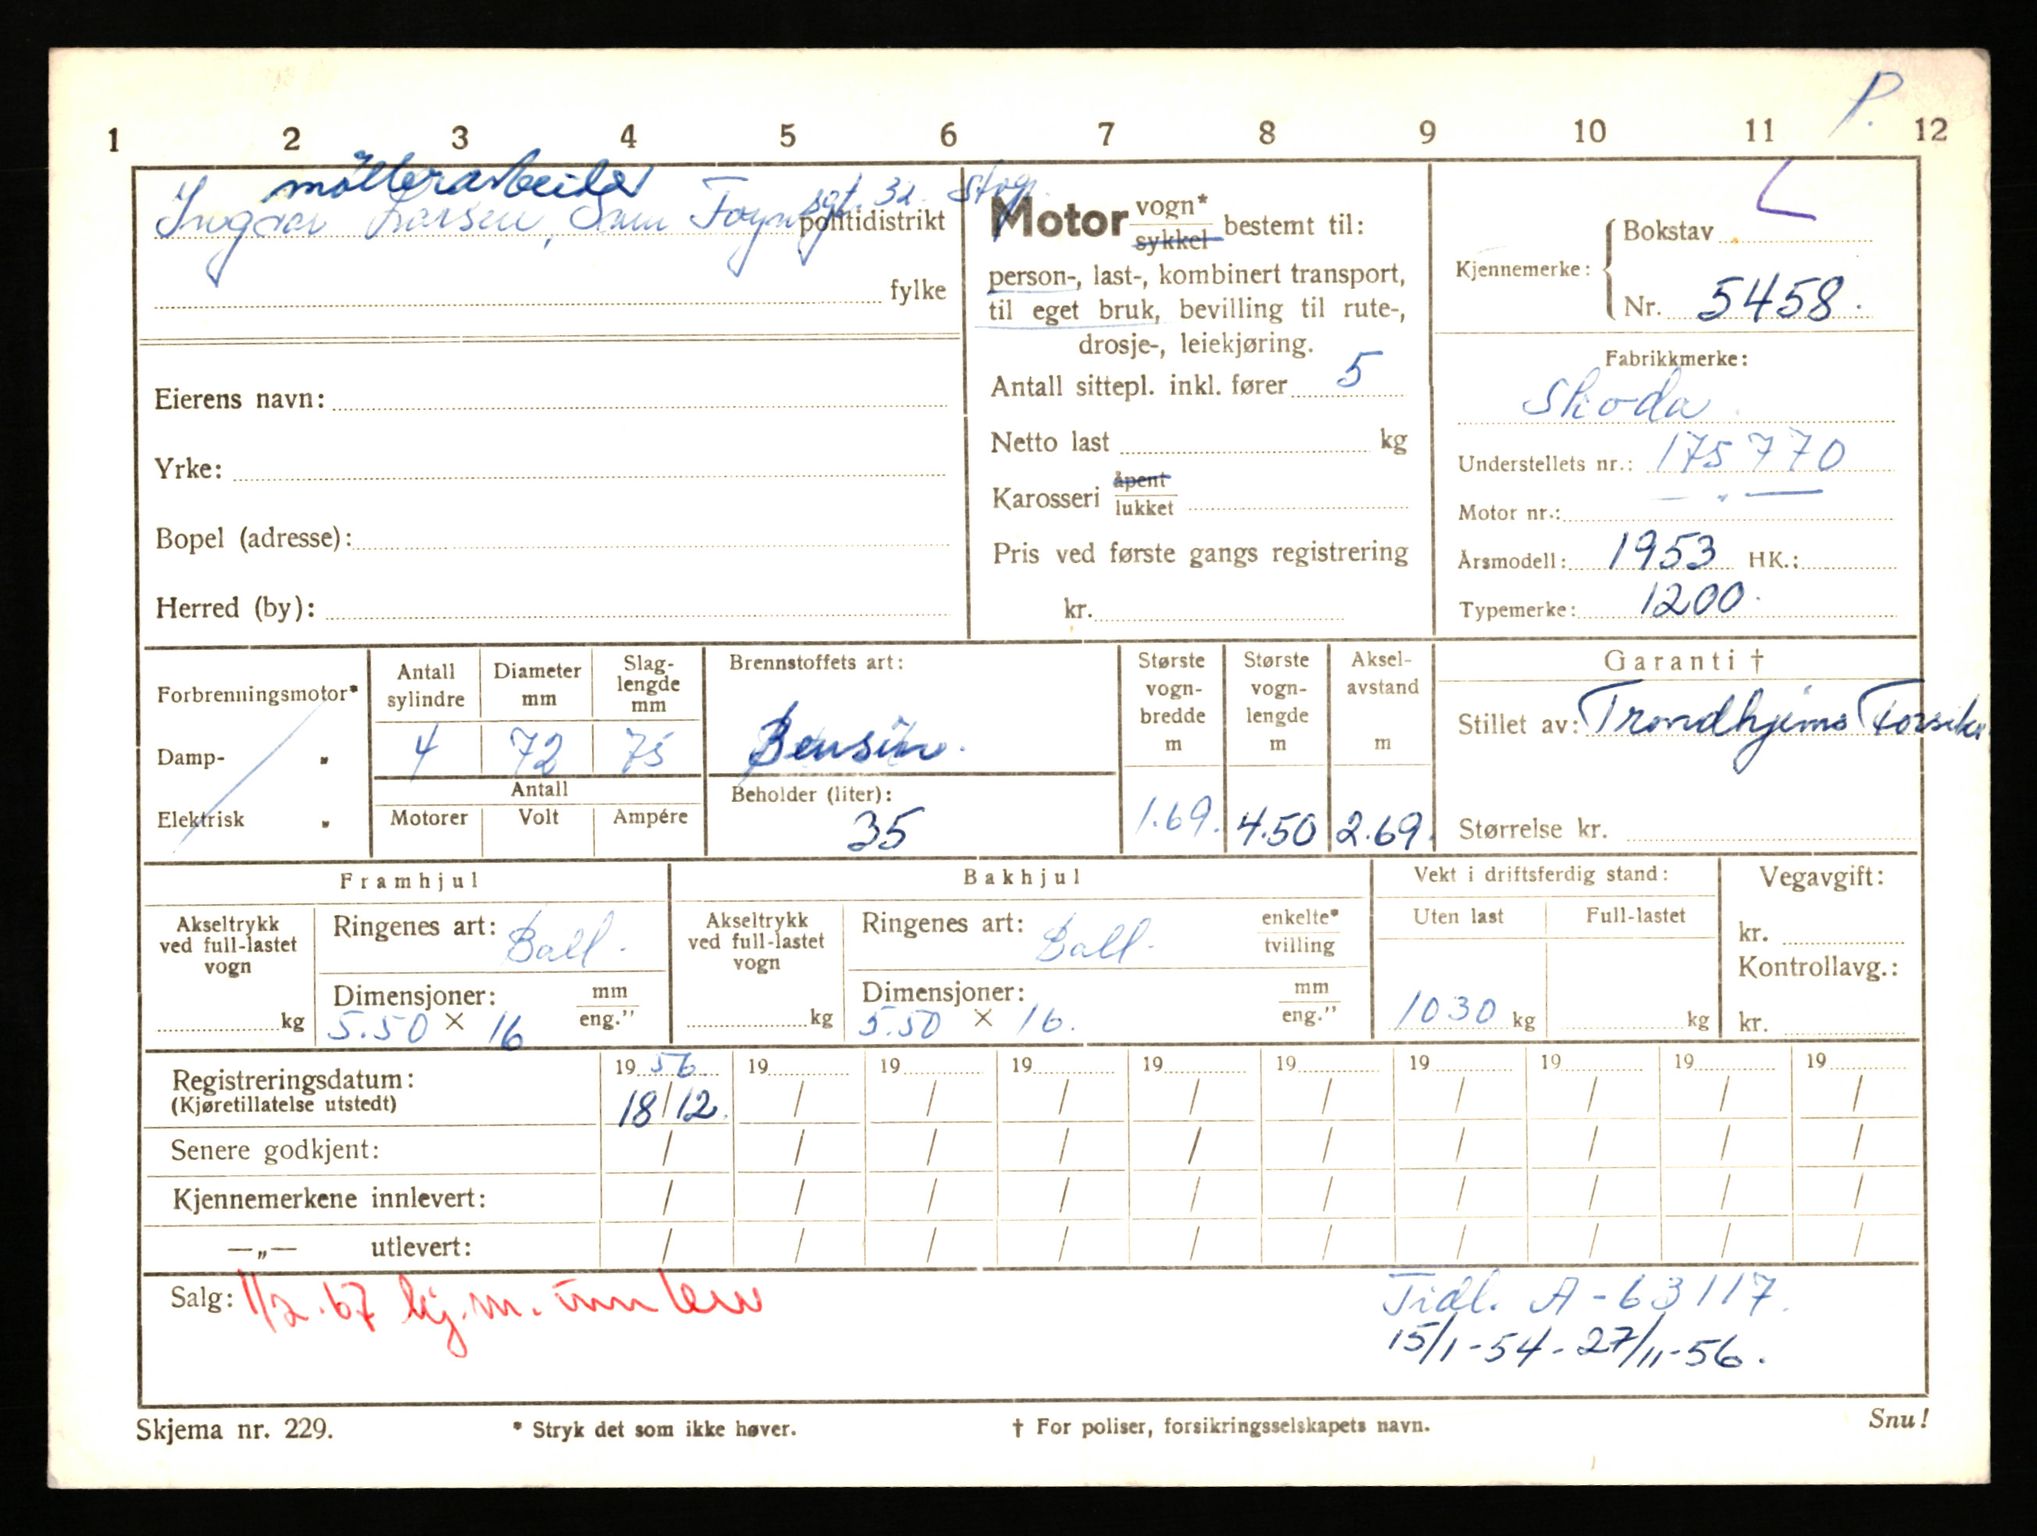 P.
1 2 3 4 5 6 7 8 9 10 11 12
møllerarbeider
Ingvar Larsen, Svend Foyns gt. 32. Stvgr.
politidistrikt
fylke
Eierens navn:
Yrke:
Bopel (adresse):
Herred (by):
Motor vogn* sykkel bestemt til:
person-, last-, kombinert transport,
til eget bruk, bevilling til rute-,
drosje-, leiekjøring.
Antall sittepl. inkl. fører 5
Netto last kg
Karosseri åpent lukket
Pris ved første gangs registrering
kr.
Kjennemerke: Bokstav L
Nr. 5458.
Fabrikkmerke:
Skoda
Understellets nr.: 175770
Motor nr.: — " —
Årsmodell: 1953 HK.:
Typemerke: 1200.
Forbrenningsmotor*
Damp- "
Elektrisk "
Antall sylindre Diameter mm Slag-lengde mm
4 72 75
Antall
Motorer Volt Ampére
Brennstoffets art:
Bensin.
Beholder (liter):
35
Største vogn-bredde m Største vogn-lengde m Aksel-avstand m
1.69. 4.50 2.69.
Garanti †
Stillet av: Trondhjems Forsikr
Størrelse kr.
Framhjul
Akseltrykk ved full-lastet vogn
kg
Ringenes art: Ball.
Dimensjoner: mm eng."
5.50 × 16
Bakhjul
Akseltrykk ved full-lastet vogn
kg
Ringenes art: Ball. enkelte* tvilling
Dimensjoner: mm eng."
5.50 × 16.
Vekt i driftsferdig stand:
Uten last Full-lastet
1030 kg kg
Vegavgift:
kr.
Kontrollavg.:
kr.
19 56 19 19 19 19 19 19 19 19 19
Registreringsdatum:
(Kjøretillatelse utstedt)
18/12. / / / / / / / / /
Senere godkjent: / / / / / / / / / /
Kjennemerkene innlevert: / / / / / / / / / /
—„— utlevert: / / / / / / / / / /
Salg: 1/2.67 kj.m. innlev
Tidl. A-63117.
15/1-54-27/11-56.
Skjema nr. 229.
* Stryk det som ikke høver.
† For poliser, forsikringsselskapets navn.
Snu!